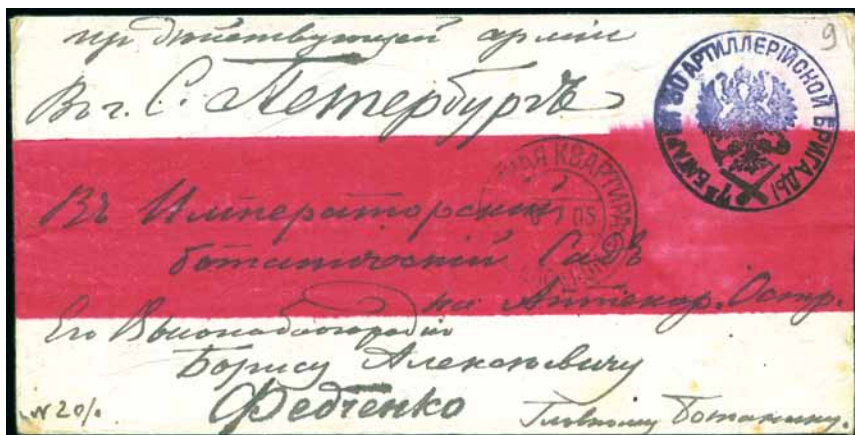 изъ действующей армiи
Въ г. С. Петербургъ
9
7й БАТАРЕИ 30 АРТИЛЛЕРIЙСКОЙ БРИГАДЫ
КВАРТИРА
05
Въ Императорскiй
ботаническiй Садъ
на Аптекар. Остр.
Его Высокоблагородiю
Борису Алексѣевичу
Федченко
№ 20/.
Главному Ботанику.